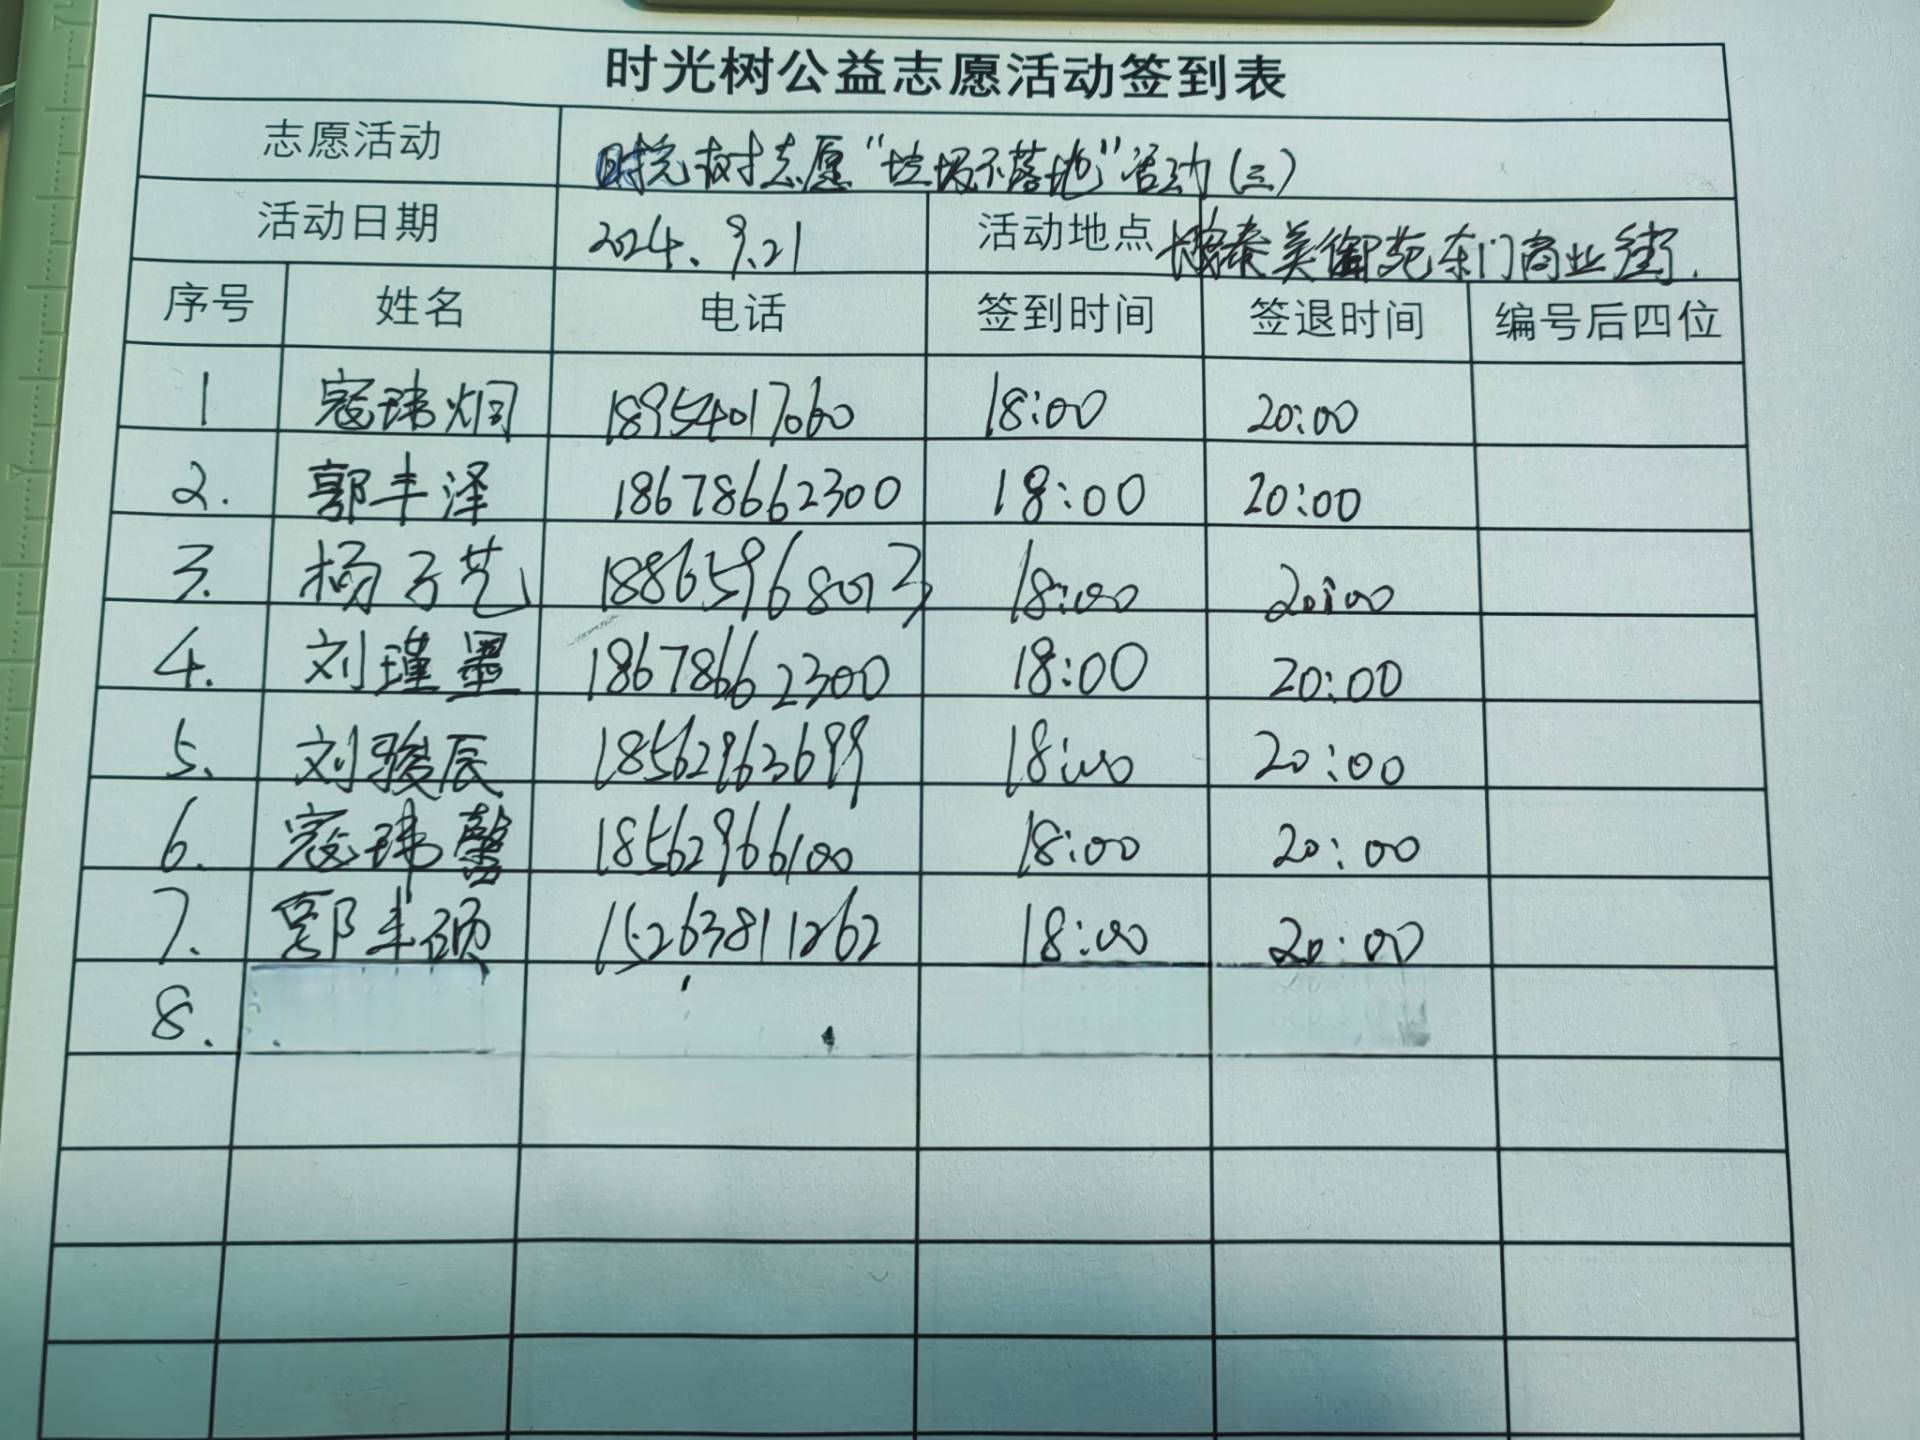 时光树公益志愿活动签到表
志愿活动 时光树志愿“垃圾不落地”活动(三)
活动日期 2024.9.21 活动地点 泰美御苑东门商业街.
序号 姓名 电话 签到时间 签退时间 编号后四位
1 寇玮炯 18954017060 18:00 20:00
2. 郭丰泽 18678662300 18:00 20:00
3. 杨子艺 18865968073 18:00 20:00
4. 刘瑾墨 18678662300 18:00 20:00
5. 刘骏辰 18562963699 18:00 20:00
6. 寇玮馨 18562966100 18:00 20:00
7. 郭丰硕 15263811262 18:00 20:00
8.